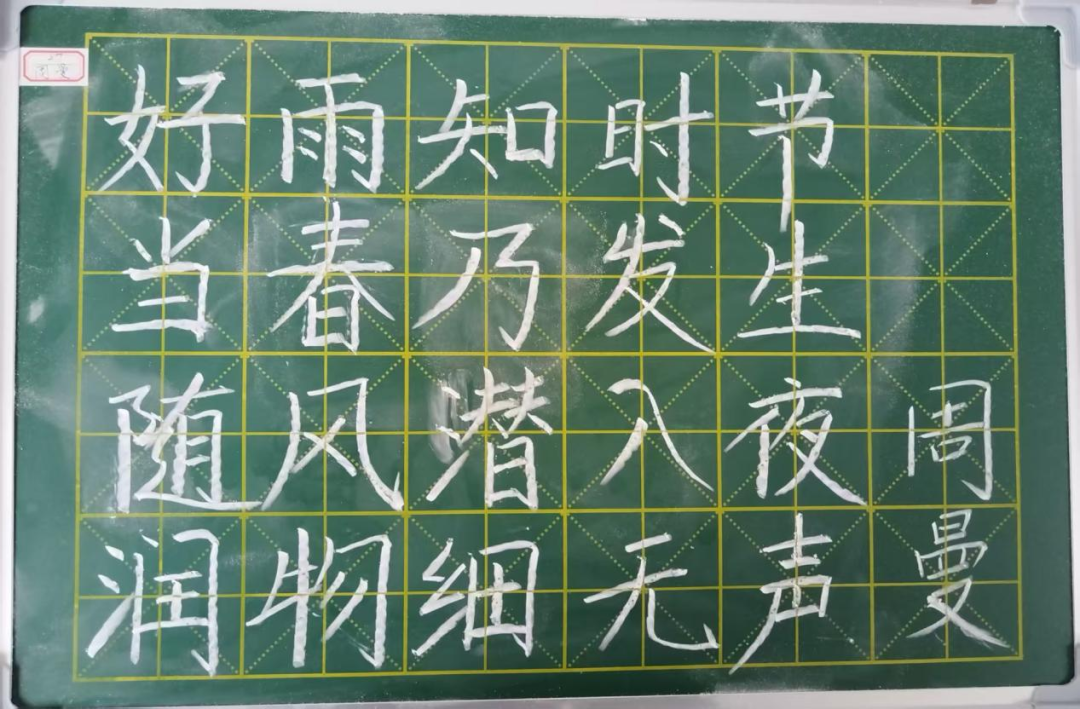 好雨知时节
当春乃发生
随风潜入夜 周
润物细无声 曼
周曼